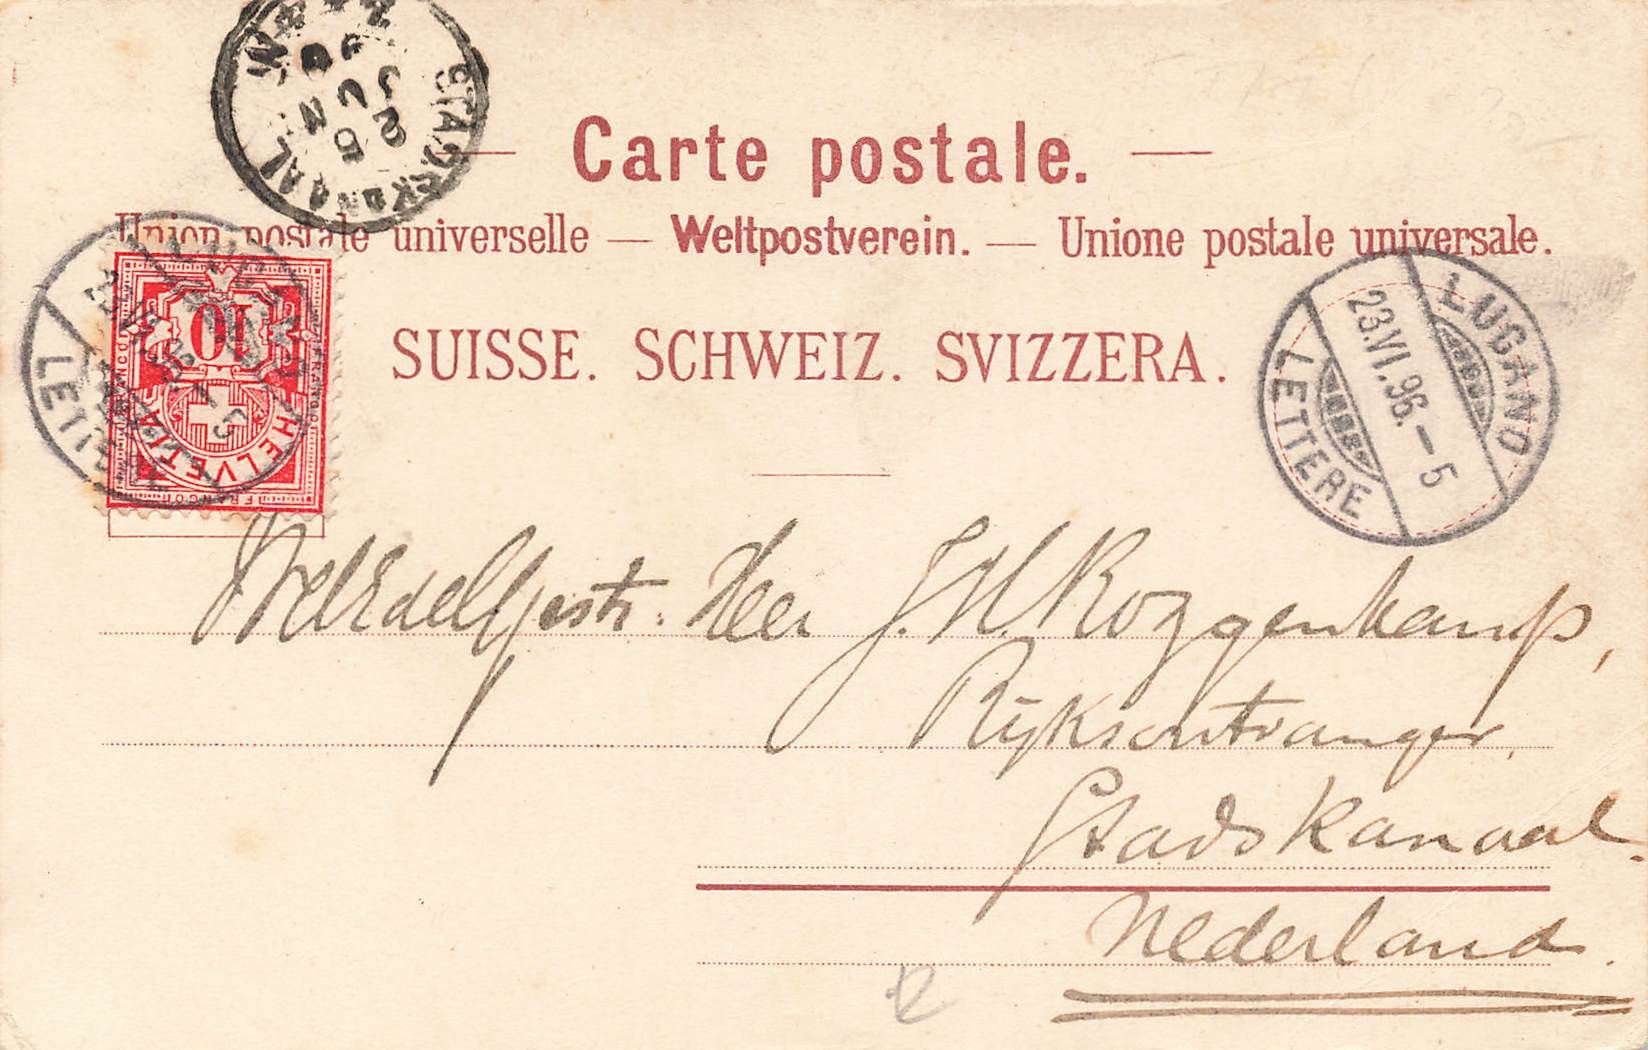 STADSKANAAL
Carte postale.
Union postale universelle — Weltpostverein. — Unione postale universale.
SUISSE. SCHWEIZ. SVIZZERA.
FRANCO
10
HELVETIA
FRANCO
LUGANO
23.VI.96.–5
LETTERE
LUGANO
23.VI.96.–5
LETTERE
WelEdelGestr. Heer J. H. Roggenkamp,
Rijksontvanger,
Stadskanaal.
Nederland.